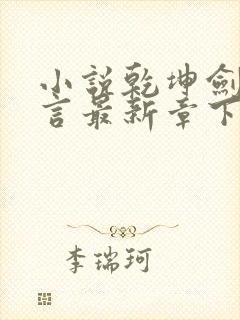 小説乾坤劍
言最新章下
李瑞珂